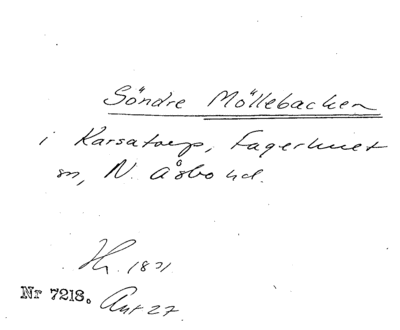 Söndre Möllebacken
i Karsatorp, Fagerhult
sn, N. Åsbo hd.
Hr. 1831
Nr 7213. Ant 27